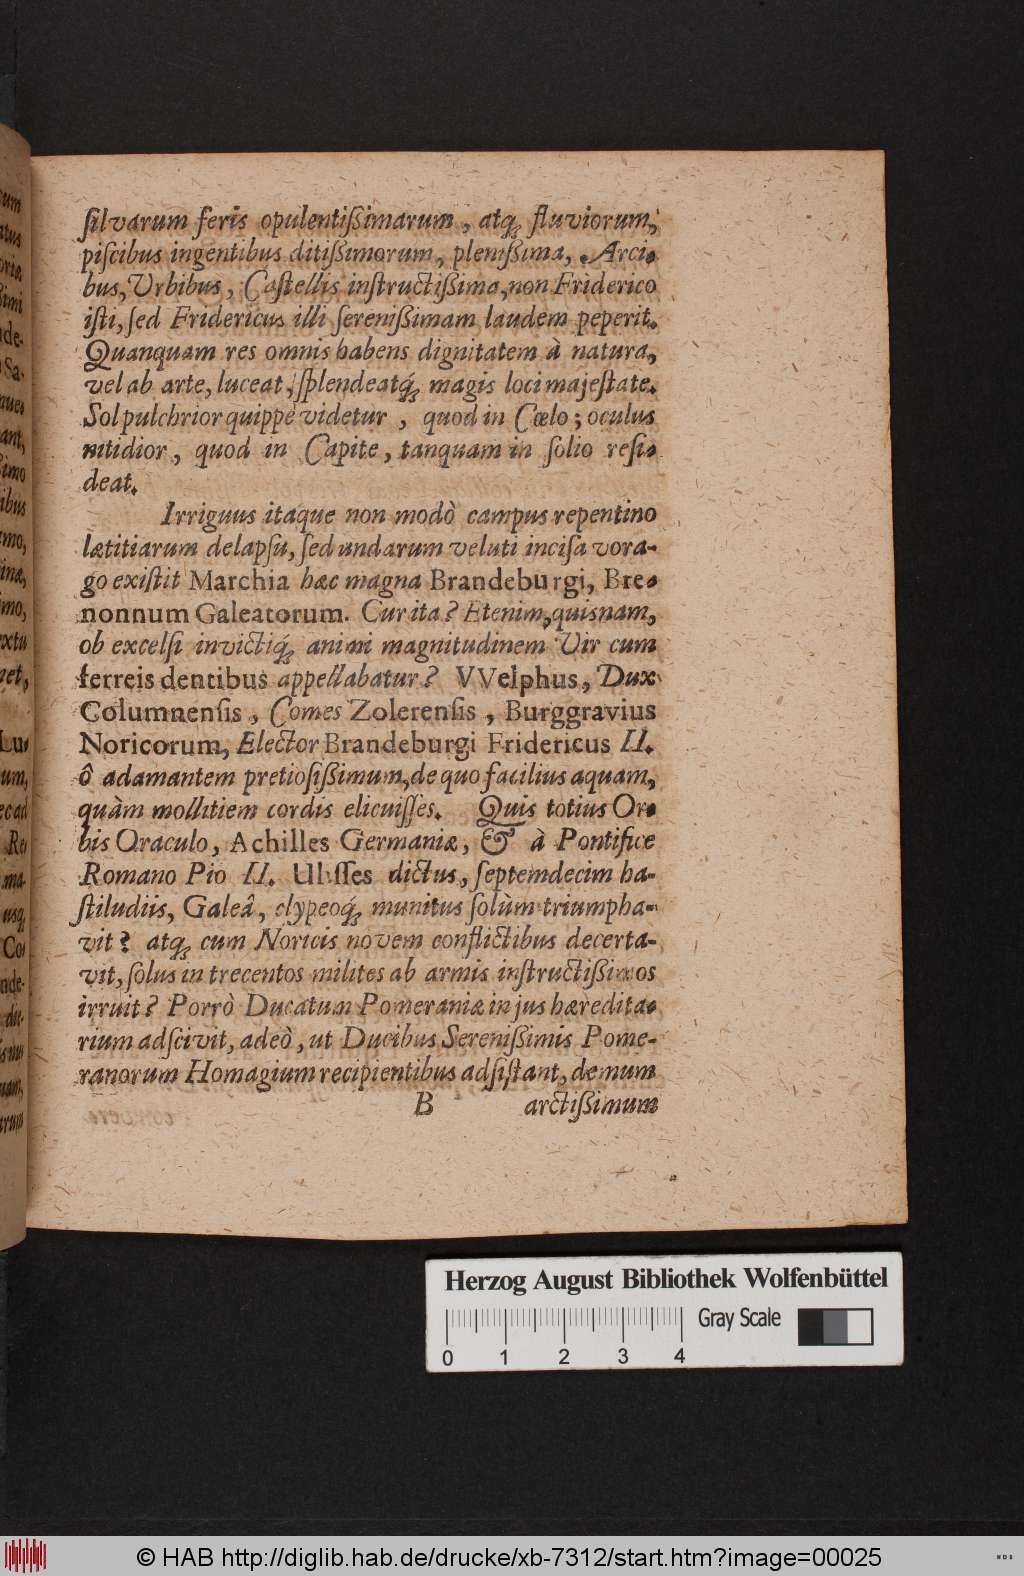 silvarum feris opulentißimarum, atq; fluviorum,
piscibus ingentibus ditißimorum, plenißima, Arci-
bus, Urbibus, Castellis instructißima, non Friderico
isti, sed Fridericus illi serenißimam laudem peperit.
Quanquam res omnis habens dignitatem à natura,
vel ab arte, luceat, splendeatq́; magis loci majestate.
Sol pulchrior quippe videtur, quod in Cœlo; oculus
nitidior, quod in Capite, tanquam in solio resi-
deat.
Irriguus itaque non modò campus repentino
lætitiarum delapsu, sed undarum veluti incisa vora-
go existit Marchia hæc magna Brandeburgi, Bre-
nonnum Galeatorum. Cur ita? Etenim, quisnam,
ob excelsi invictiq́; animi magnitudinem Vir cum
ferreis dentibus appellabatur? VVelphus, Dux
Columnensis, Comes Zolerensis, Burggravius
Noricorum, Elector Brandeburgi Fridericus II.
ô adamantem pretiosißimum, de quo facilius aquam,
quàm mollitiem cordis elicuisses. Quis totius Or-
bis Oraculo, Achilles Germaniæ, & à Pontifice
Romano Pio II. Ulisses dictus, septemdecim ha-
stiludiis, Galeâ, clypeoq́; munitus solùm triumpha-
vit? atq; cum Noricis novem conflictibus decerta-
vit, solus in trecentos milites ab armis instructißimos
irruit? Porrò Ducatum Pomeraniæ in jus hæredita-
rium adscivit, adeò, ut Ducibus Serenißimis Pome-
ranorum Homagium recipientibus adsistant, demum
B arctißimum
Herzog August Bibliothek Wolfenbüttel
Gray Scale
0 1 2 3 4
© HAB http://diglib.hab.de/drucke/xb-7312/start.htm?image=00025